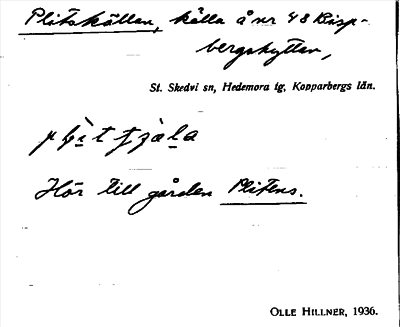 Plitskällan, källa å nr 48 Bisp-
bergshyttan,
St. Skedvi sn, Hedemora tg, Kopparbergs län.
Hör till gården Plitens.
OLLE HILLNER, 1936.